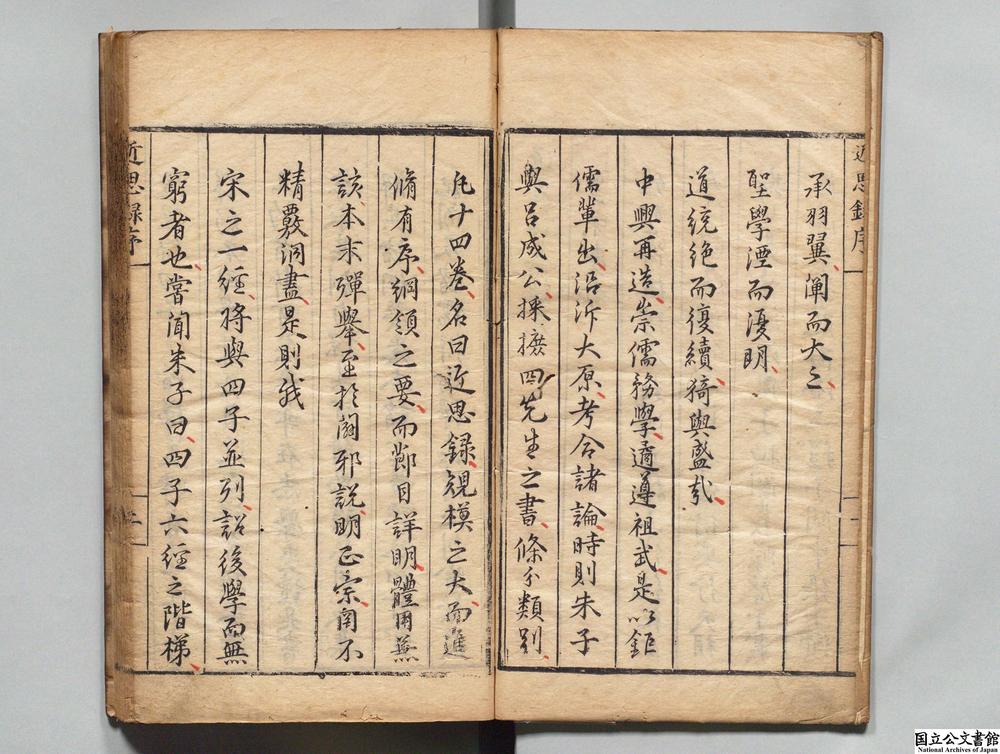 近思錄序
承羽翼闡而大之
聖學湮而復明
道統絶而復續猗與盛哉
中興再造崇儒務學遹遵祖武是以鉅
儒輩出沿泝大原考合諸論時則朱子
與吕成公採摭四先生之書條分類别
凡十四卷名曰近思録規模之大而進
脩有序綱領之要而節目詳明體用兼
該本末殫舉至於闢邪説明正宗罔不
精覈洞盡是則我
宋之一經将與四子並列詔後學而無
窮者也嘗聞朱子曰四子六經之階梯
近思録序
国立公文書館
National Archives of Japan